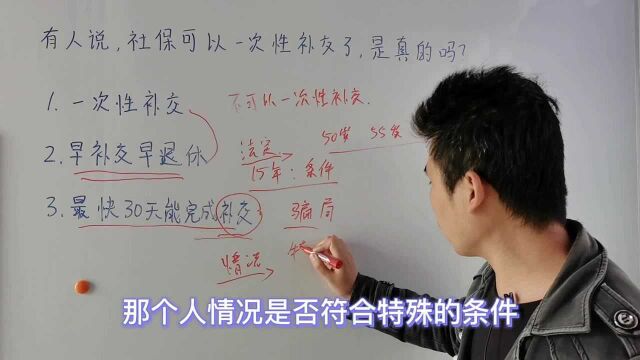 有人说，社保可以一次性补交了，是真的吗？
1. 一次性补交
不可以一次性补交.
2. 早补交早退休
法定
50岁 55岁
15年：条件
3. 最快30天能完成补交：
骗局
情况
那个人情况是否符合特殊的条件